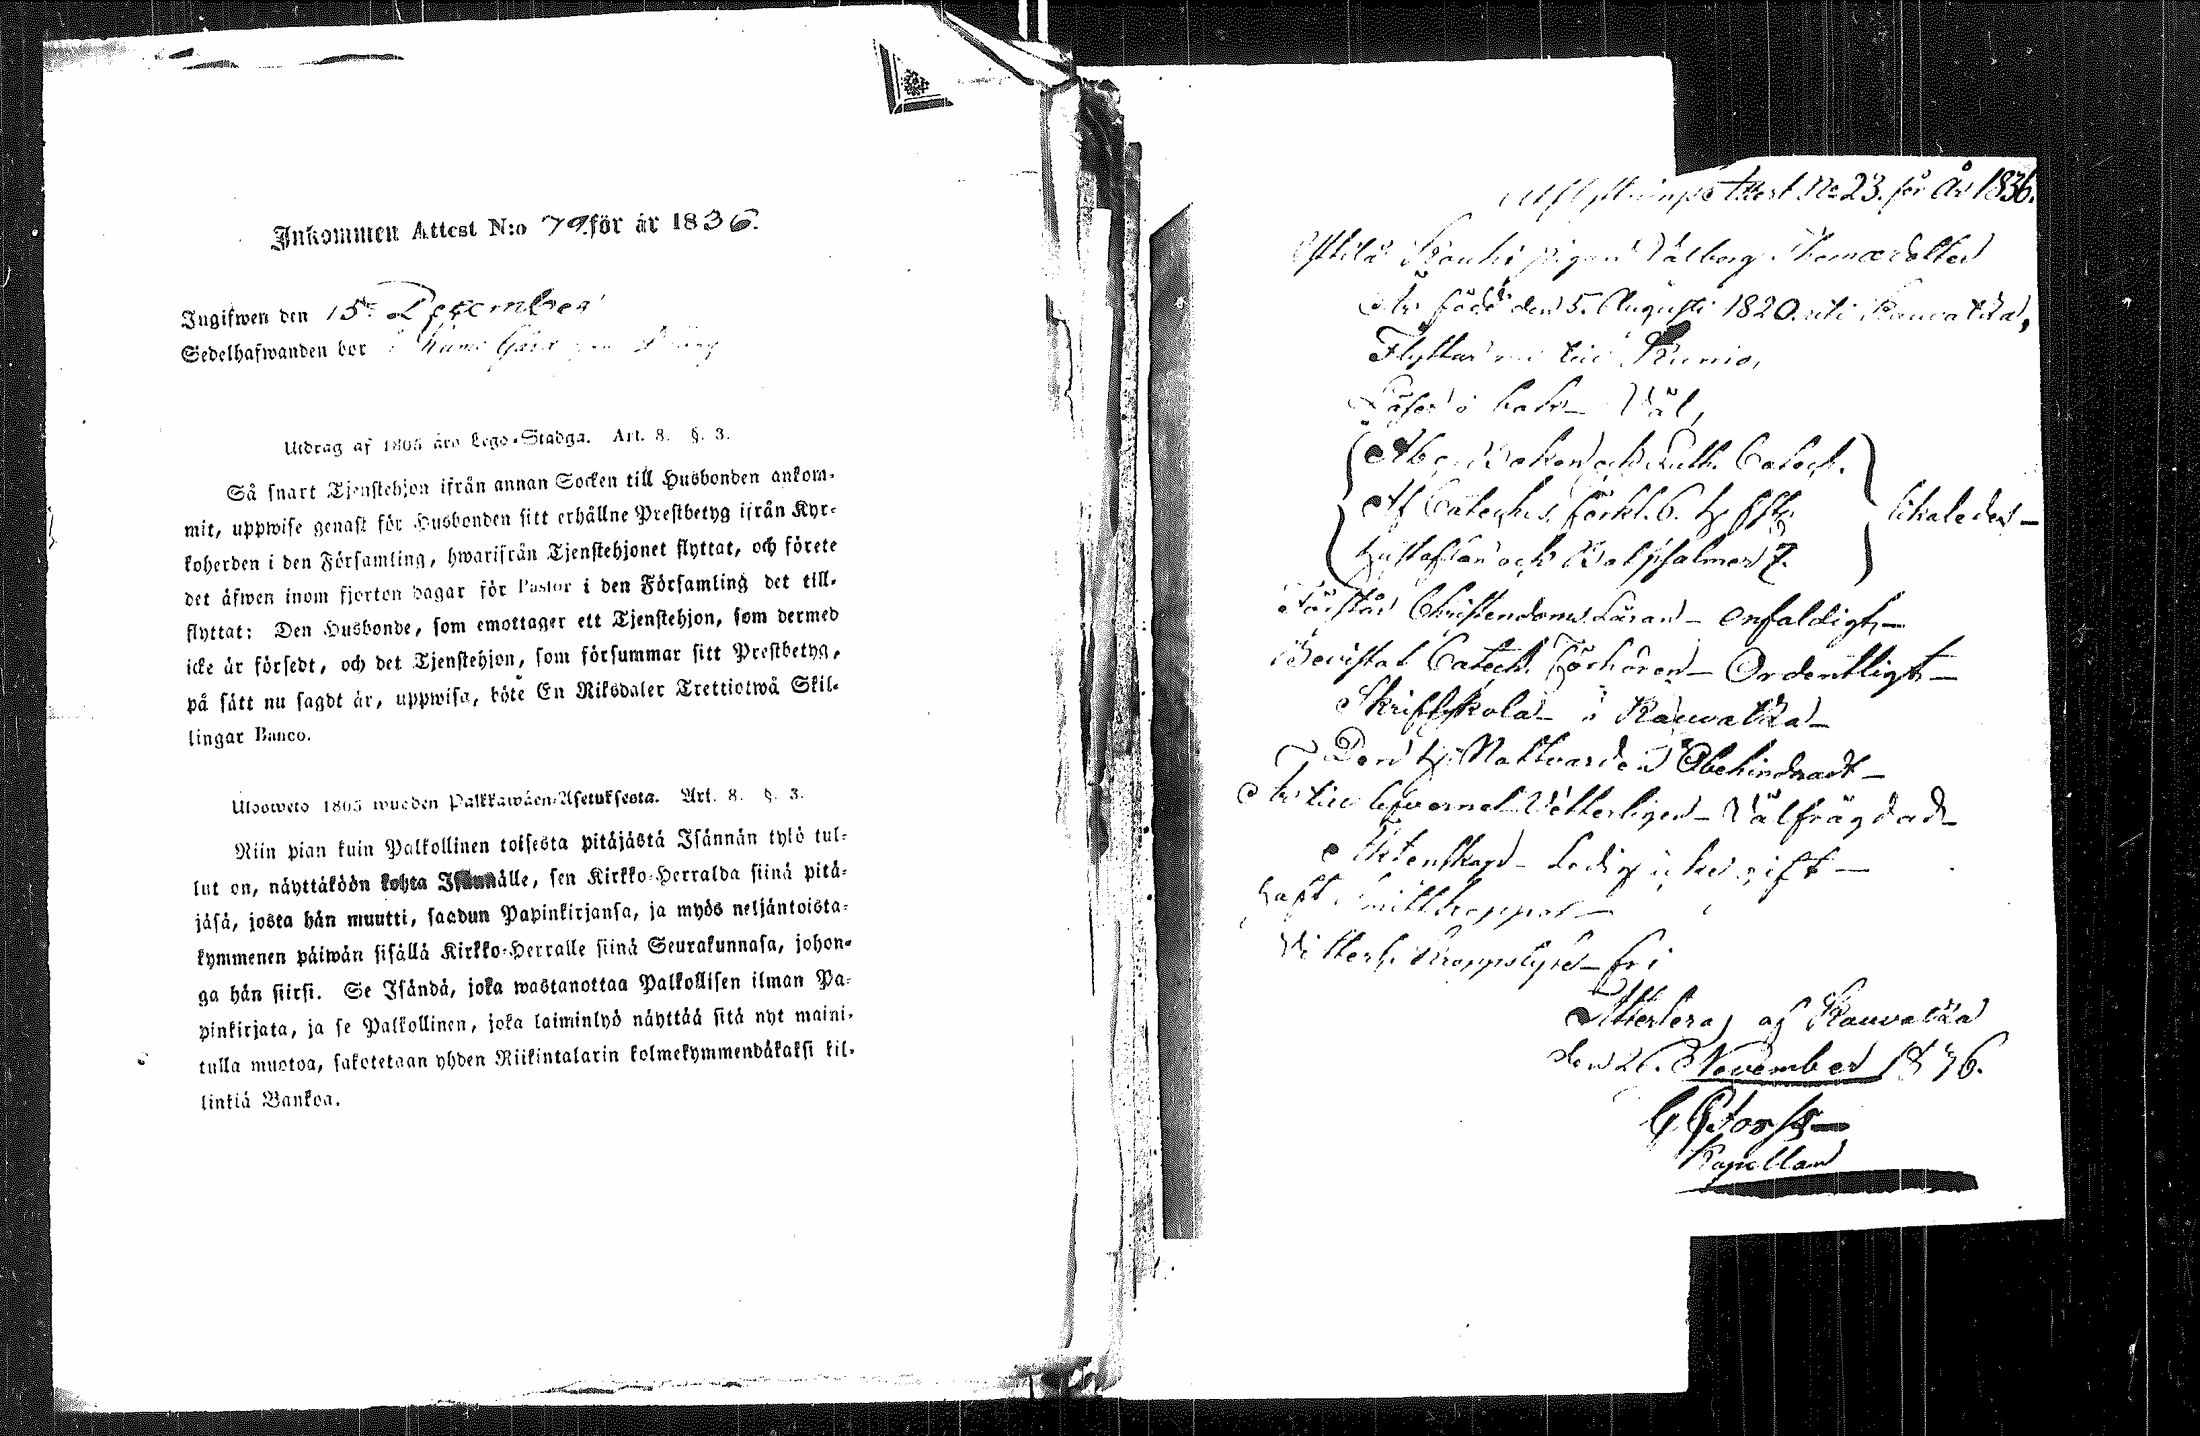 Inkommen Attest N:o 79. för år 1836.
Ingifwen den 15de December
Sedelhafwanden bor i Kumo Gård
Utdrag af 1805 års Lego-Stadga. Art. 8. §. 3.
Så snart Tjenstehjon ifrån annan Socken till Husbonden ankom-
mit, uppwise genast för Husbonden sitt erhållne Prestbetyg ifrån Kyr-
koherden i den Församling, hwarifrån Tjenstehjonet flyttat, och förete
det äfwen inom fjorton dagar för Pastor i den Församling det till-
flyttat: Den Husbonde, som emottager ett Tjenstehjon, som dermed
icke är försedt, och det Tjenstehjon, som försummar sitt Prestbetyg,
på sätt nu sagdt är, uppwisa, böte En Riksdaler Trettiotwå Skil-
lingar Banco.
Ulosweto 1805 wuoden Palkkawäen-Asetuksesta. Art. 8. §. 3.
Niin pian kuin Palkollinen toisesta pitäjästä Isännän tylö tul-
lut on, näyttäköön kohta Isännälle, sen Kirkko-Herralda siinä pitä-
jäsä, josta hän muutti, saadun Papinkirjansa, ja myös neljäntoista-
kymmenen päiwän sisällä Kirkko-Herralle siinä Seurakunnasa, johon-
ga hän siirsi. Se Isändä, joka wastanottaa Palkollisen ilman Pa-
pinkirjata, ja se Palkollinen, joka laiminlyö näyttää sitä nyt maini-
tulla muotoa, sakotetaan yhden Riikintalarin kolmekymmendäkaksi kil-
linkiä Bankoa.
Utflyttnings Attest No 23. för År 1836.
pigan Valborg Thomædotter
Är född den 5. Augusti 1820. uti Kauvatsa,
Flyttar nu till Kumo,
Läser i bok Väl,
Abc Boken och Luth. Catech.
Af Cateches. förkl. 6. H. st.
Hustaflan och Botpsalmer 7.
likaledes
Förstår Christendoms Läran enfaldigt
Bevistat Catech. Förhören Ordentligt
Skriftskola i Kauvatsa
Den H. Nattvarden Obehindradt
Är till Lefvernet Vetterligen Välfrägdad
Ägtenskap Ledig icke gift
haft Smittkoppor
Vitterl. Kroppslyte fri
Attesteras af Kauvatsa
den 26. November 1836.
Kapellan